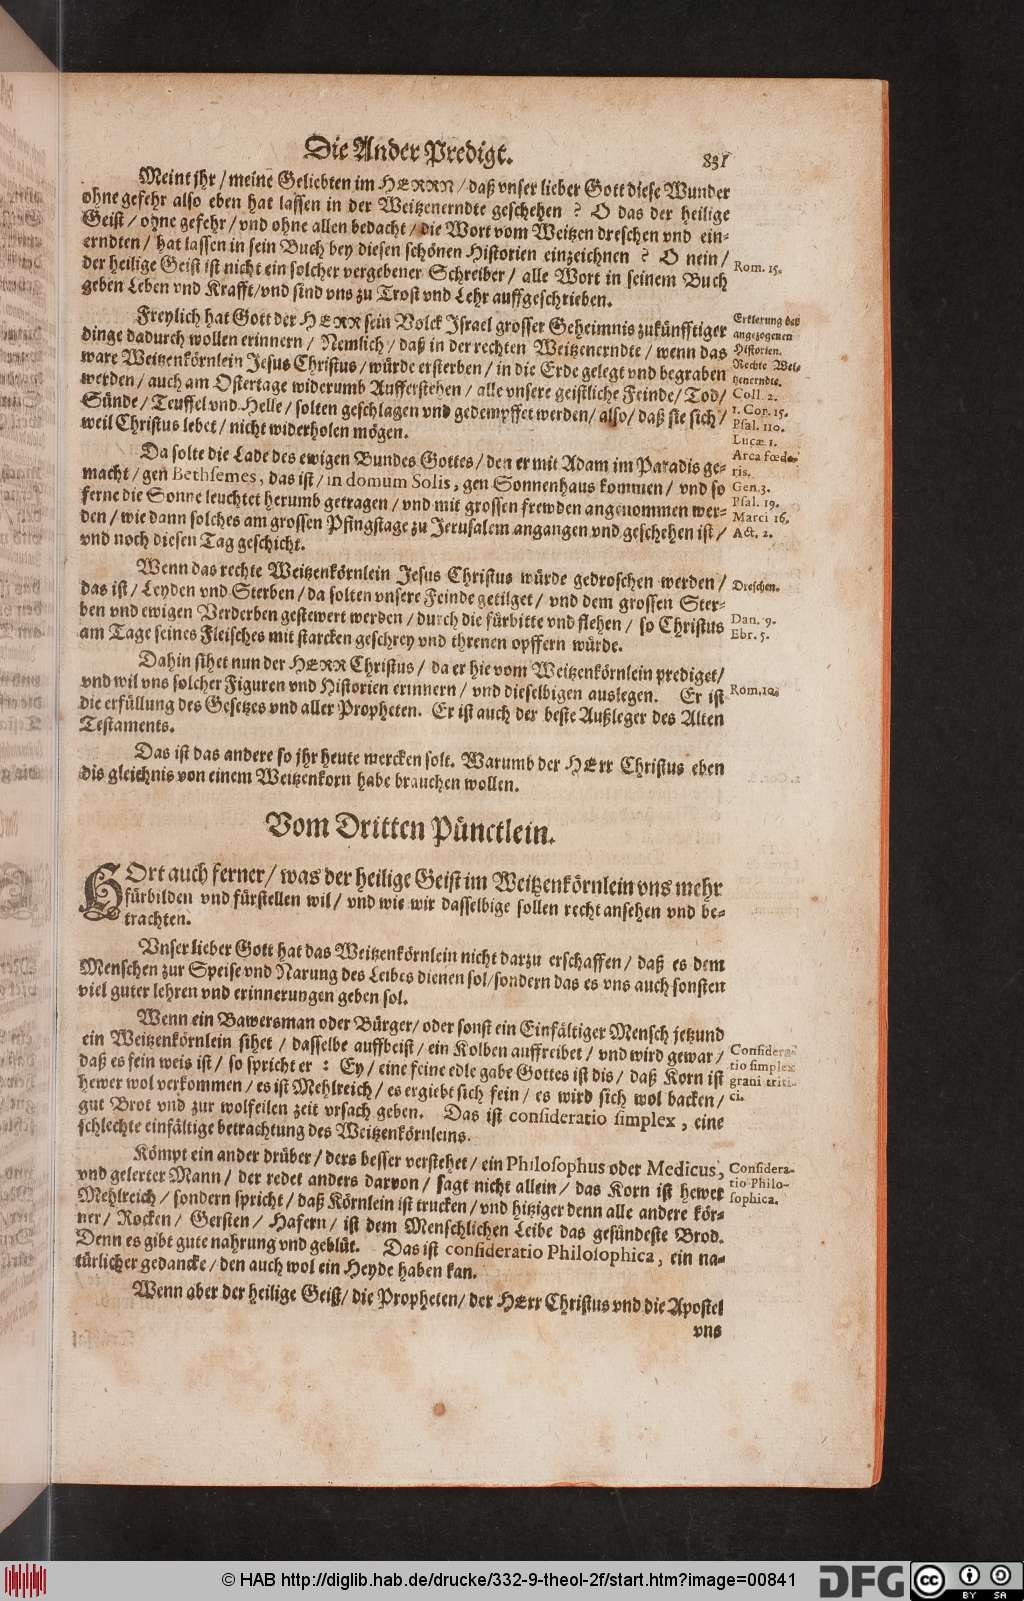 Die Ander Predigt.
831
Meint jhr / meine Geliebten im HERRN / daß vnser lieber Gott diese Wunder
ohne gefehr also eben hat lassen in der Weitzenerndte geschehen ? O das der heilige
Geist / ohne gefehr / vnd ohne allen bedacht / die Wort vom Weitzen dreschen vnd ein-
erndten / hat lassen in sein Buch bey diesen schönen Historien einzeichnen ? O nein /
der heilige Geist ist nicht ein solcher vergebener Schreiber / alle Wort in seinem Buch
geben Leben vnd Krafft / vnd sind vns zu Trost vnd Lehr auffgeschrieben.
Rom. 15.
Freylich hat Gott der HERR sein Volck Jsrael grosser Geheimnis zukünfftiger
dinge dadurch wollen erinnern / Nemlich / daß in der rechten Weitzenerndte / wenn das
ware Weitzenkörnlein Jesus Christus / würde ersterben / in die Erde gelegt vnd begraben
werden / auch am Ostertage widerumb Aufferstehen / alle vnsere geistliche Feinde / Tod /
Sünde / Teuffel vnd Helle / solten geschlagen vnd gedempffet werden / also / daß sie sich /
weil Christus lebet / nicht widerholen mögen.
Erklerung des
angezogenen
Historien.
Rechte Wei-
tzenerndte.
Coll. 2.
1. Cor. 15.
Psal. 110.
Lucæ 1.
Da solte die Lade des ewigen Bundes Gottes / den er mit Adam im Paradis ge-
macht / gen Bethsemes, das ist / in domum Solis, gen Sonnenhaus kommen / vnd so
ferne die Sonne leuchtet herumb getragen / vnd mit grossen frewden angenommen wer-
den / wie dann solches am grossen Pfingstage zu Jerusalem angangen vnd geschehen ist /
vnd noch diesen Tag geschicht.
Arca fœde-
ris.
Gen. 3.
Psal. 19.
Marci 16.
Act. 2.
Wenn das rechte Weitzenkörnlein Jesus Christus würde gedroschen werden /
das ist / Leyden vnd Sterben / da solten vnsere Feinde getilget / vnd dem grossen Ster-
ben vnd ewigen Verderben gestewert werden / durch die fürbitte vnd flehen / so Christus
am Tage seines Fleisches mit starcken geschrey vnd threnen opffern würde.
Dreschen.
Dan. 9.
Ebr. 5.
Dahin sihet nun der HERR Christus / da er hie vom Weitzenkörnlein prediget /
vnd wil vns solcher Figuren vnd Historien erinnern / vnd dieselbigen auslegen. Er ist
die erfüllung des Gesetzes vnd aller Propheten. Er ist auch der beste Außleger des Alten
Testaments.
Rom. 10.
Das ist das andere so jhr heute mercken solt. Warumb der HErr Christus eben
dis gleichnis von einem Weitzenkorn habe brauchen wollen.
Vom Dritten Pünctlein.
HOrt auch ferner / was der heilige Geist im Weitzenkörnlein vns mehr
fürbilden vnd fürstellen wil / vnd wie wir dasselbige sollen recht ansehen vnd be-
trachten.
Vnser lieber Gott hat das Weitzenkörnlein nicht darzu erschaffen / daß es dem
Menschen zur Speise vnd Narung des Leibes dienen sol / sondern das es vns auch sonsten
viel guter lehren vnd erinnerungen geben sol.
Wenn ein Bawersman oder Bürger / oder sonst ein Einfältiger Mensch jetzund
ein Weitzenkörnlein sihet / dasselbe auffbeist / ein Kolben auffreibet / vnd wird gewar /
daß es fein weis ist / so spricht er : Ey / eine feine edle gabe Gottes ist dis / daß Korn ist
hewer wol verkommen / es ist Mehlreich / es ergiebt sich fein / es wird sich wol backen /
gut Brot vnd zur wolfeilen zeit vrsach geben. Das ist consideratio simplex, eine
schlechte einfältige betrachtung des Weitzenkörnleins.
Considera-
tio simplex
grani triti-
ci.
Kömpt ein ander drüber / ders besser verstehet / ein Philosophus oder Medicus,
vnd gelerter Mann / der redet anders darvon / sagt nicht allein / das Korn ist hewer
Mehlreich / sondern spricht / daß Körnlein ist trucken / vnd hitziger denn alle andere kör-
ner / Rocken / Gersten / Hafern / ist dem Menschlichen Leibe das gesündeste Brod.
Denn es gibt gute nahrung vnd geblüt. Das ist consideratio Philosophica, ein na-
türlicher gedancke / den auch wol ein Heyde haben kan.
Considera-
tio Philo-
sophica.
Wenn aber der heilige Geist / die Propheten / der HErr Christus vnd die Apostel
vns
© HAB http://diglib.hab.de/drucke/332-9-theol-2f/start.htm?image=00841
DFG
cc BY SA